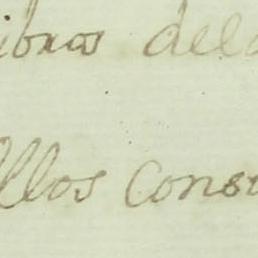 ibros dela
ellos cons